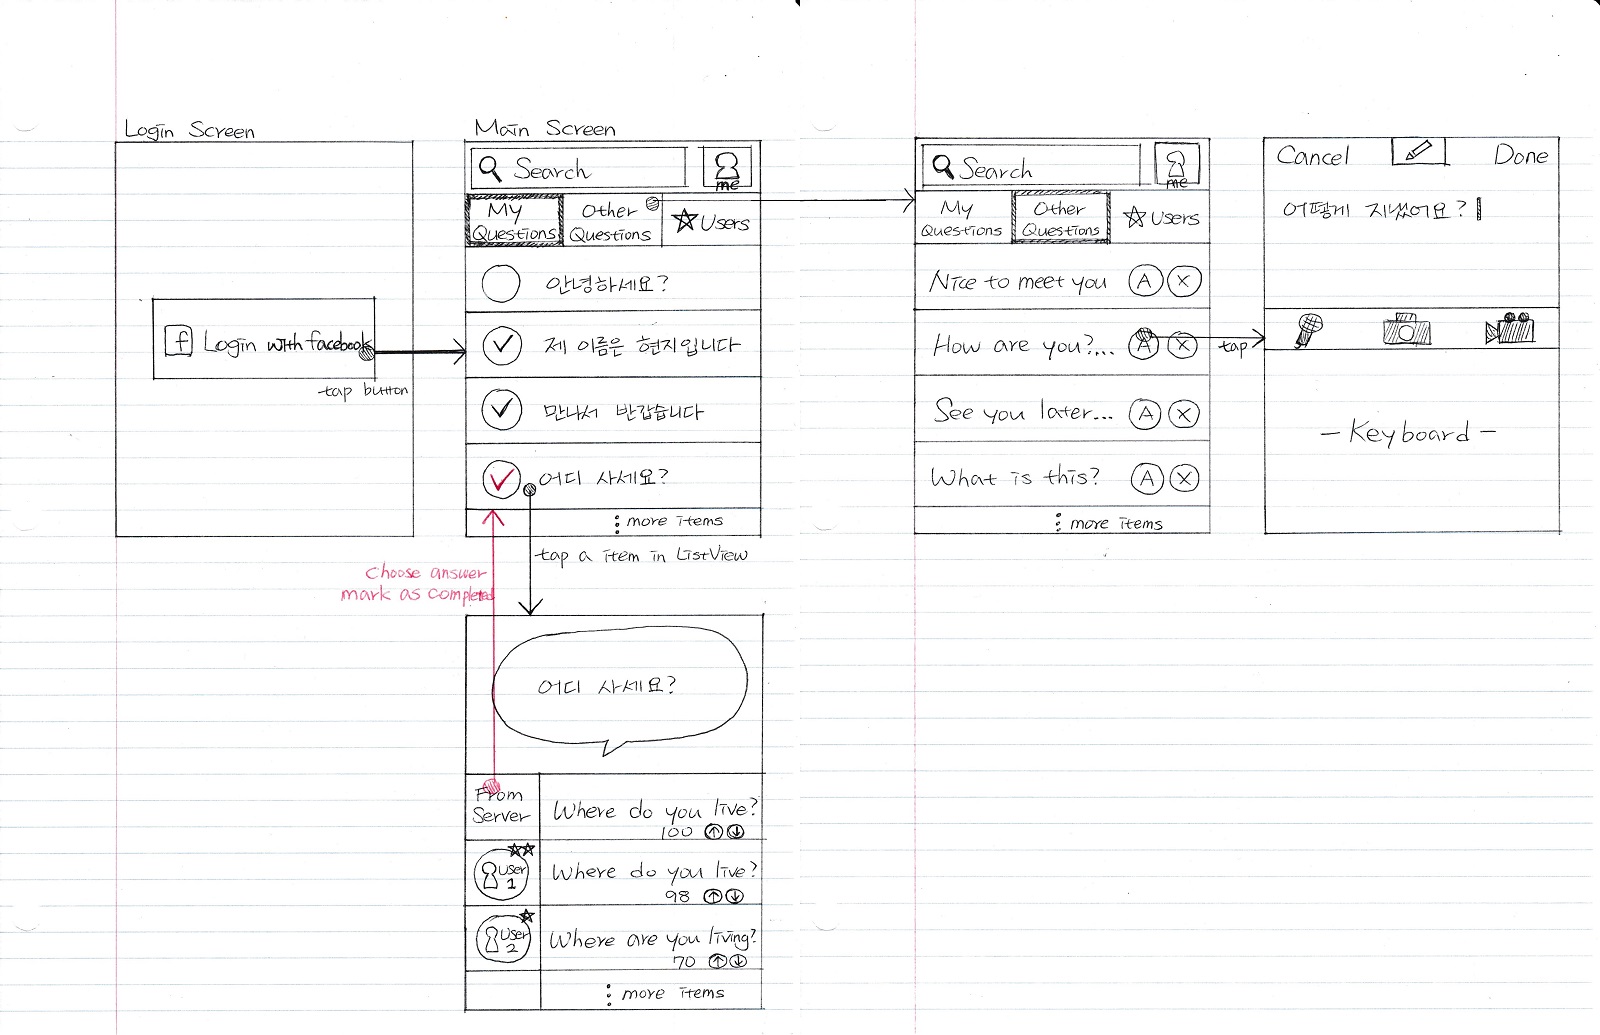 Login Screen
f Login with facebook
tap button
Main Screen
Search
me
My
Questions
Other
Questions
Users
안녕하세요?
제 이름은 현지입니다
만나서 반갑습니다
어디 사세요?
more items
tap a item in ListView
Choose answer
mark as completed
어디 사세요?
From
Server
Where do you live?
100
User
1
Where do you live?
98
User
2
Where are you living?
70
more items
Search
me
My
Questions
Other
Questions
Users
Nice to meet you A X
How are you?... A X
tap
See you later... A X
What is this? A X
more items
Cancel Done
어떻게 지냈어요?
- Keyboard -